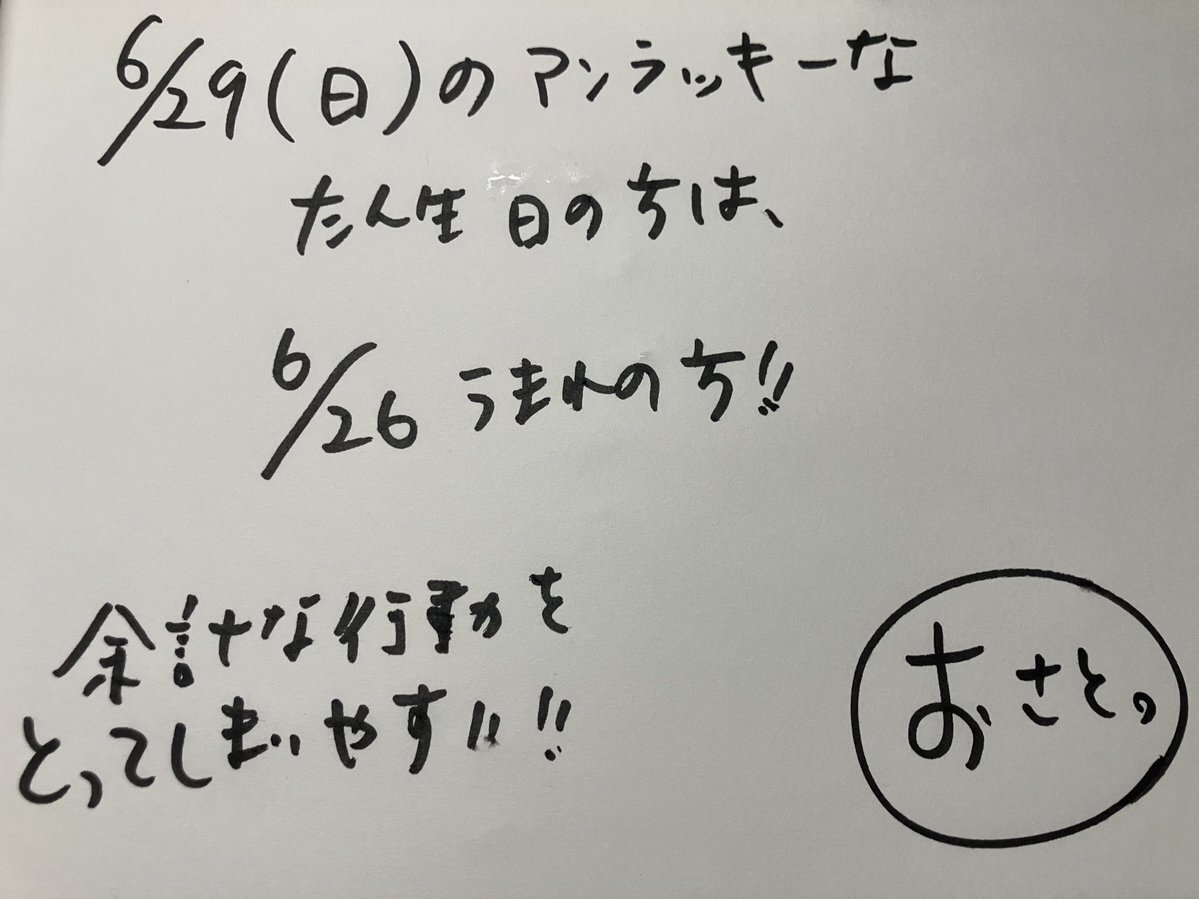 6/29(日)のアンラッキーな
たん生日の方は、
6/26うまれの方!!
余計な行動を
とってしまいやすい!!
おさとっ